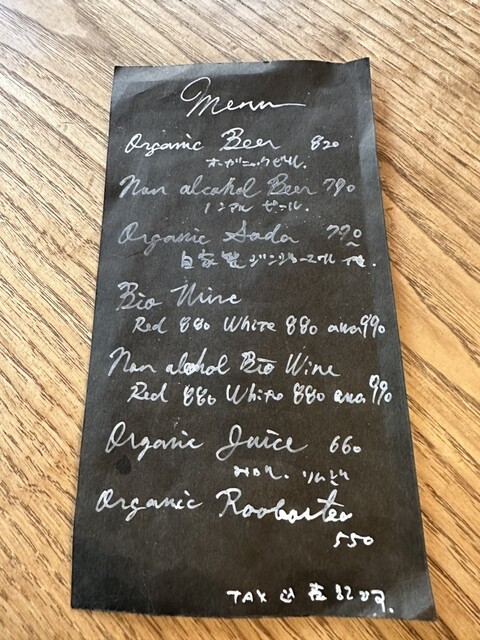 Menu
Organic Beer 820
オーガニックビール.
Non alcohol Beer 790
ノンアル ビール.
Organic Soda 790
自家製ジンジャーエール 他.
Bio Wine
Red 880 White 880 awa 990
Non alcohol Bio Wine
Red 880 White 880 awa 990
Organic Juice 660
みかん. りんご
Organic Rooibostea
550
TAX